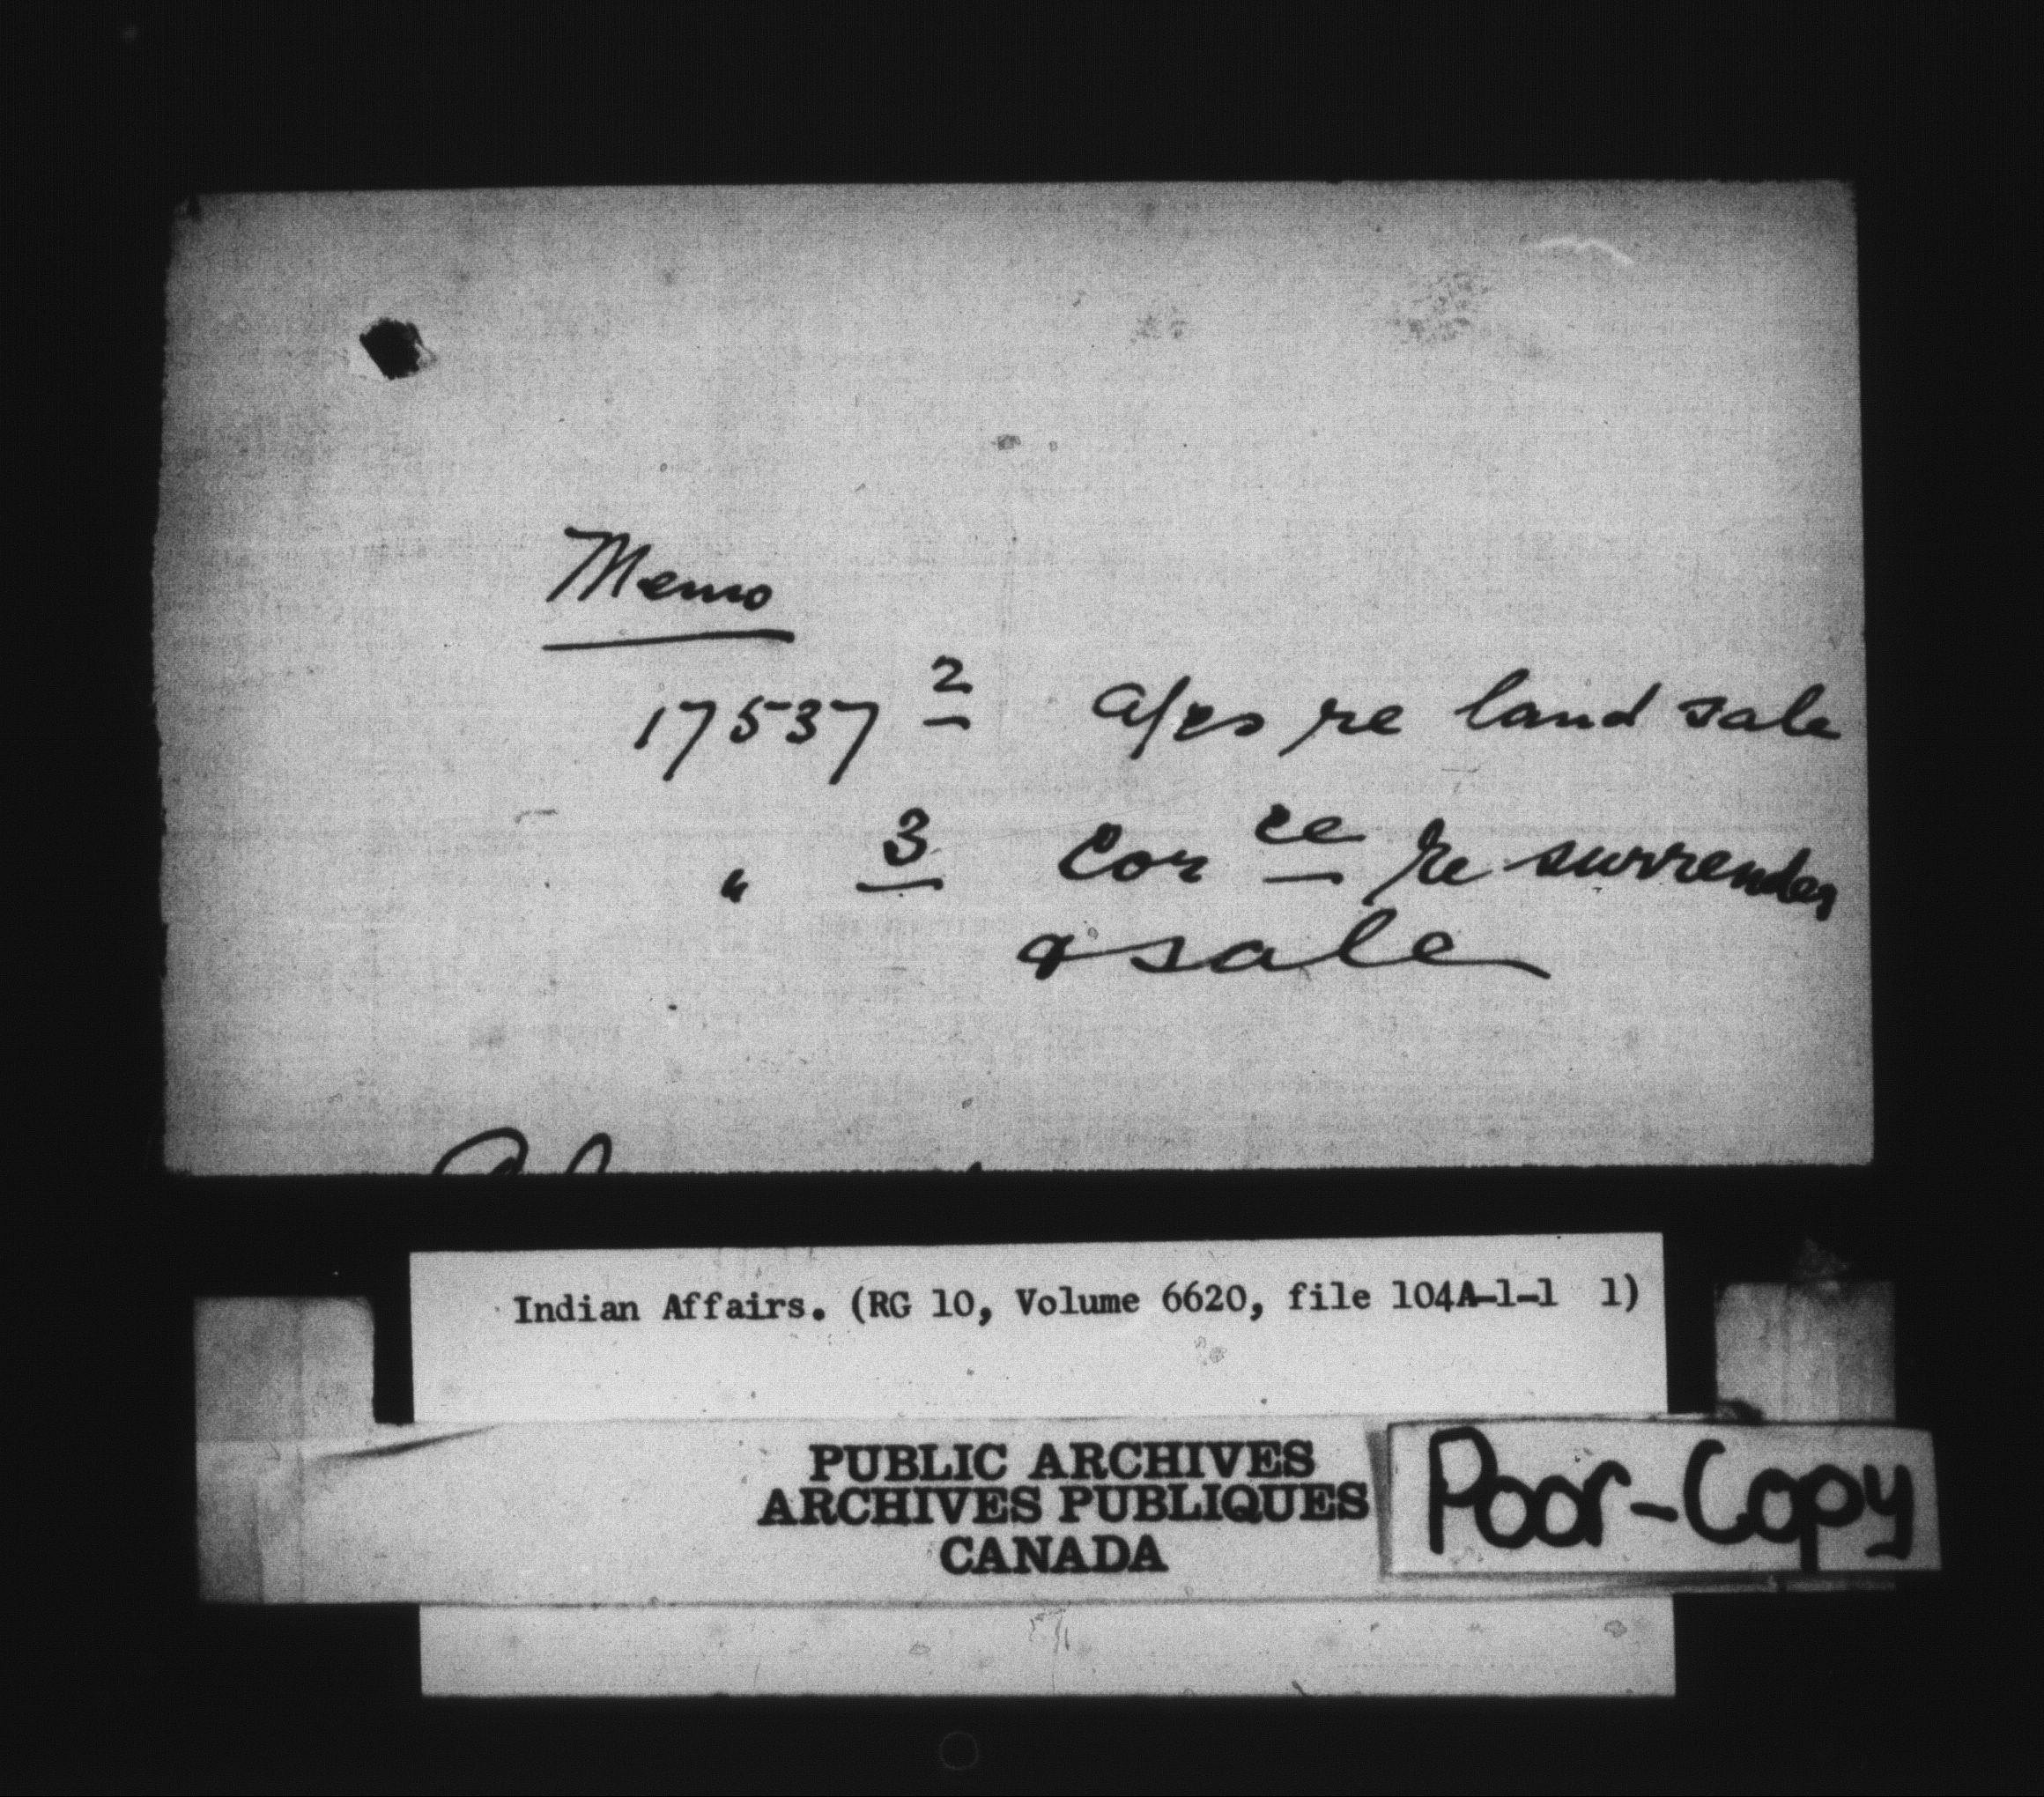 Memo
17537 2 a/cs re land sale
" 3 Cor ce re surrender
& sale
Indian Affairs. (RG 10, Volume 6620, file 104A-1-1 1)
PUBLIC ARCHIVES
ARCHIVES PUBLIQUES
CANADA
Poor-Copy